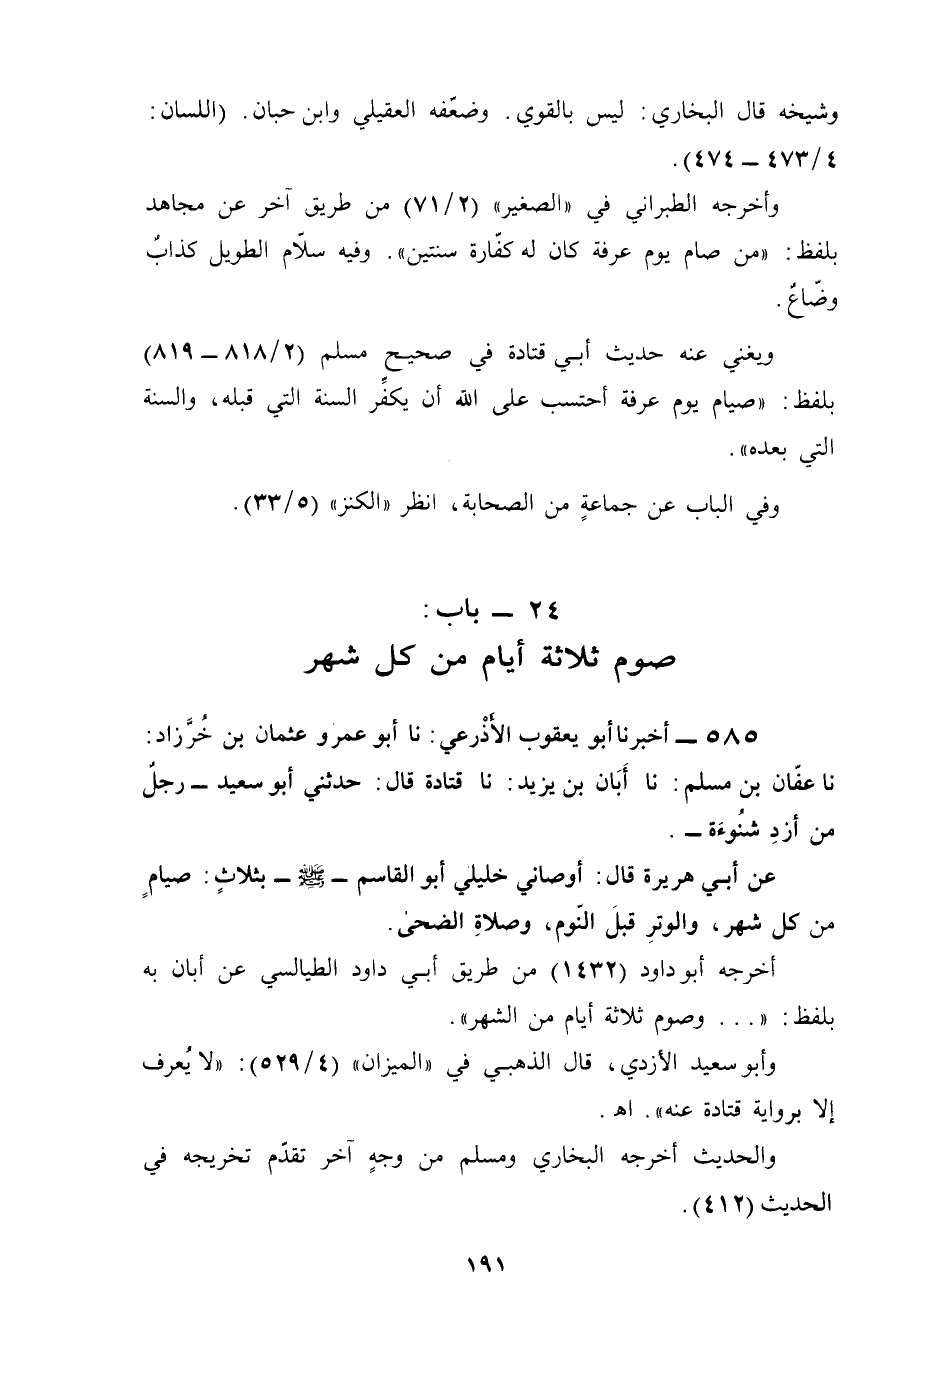 وشيخه قال البخاري: ليس بالقوي. وضعّفه العقيلي وابن حبان. (اللسان:
٤٧٣/٤ ــ ٤٧٤).
وأخرجه الطبراني في «الصغير» (٧١/٢) من طريق آخر عن مجاهد
بلفظ: «من صام يوم عرفة كان له كفّارة سنتين». وفيه سلّام الطويل كذابٌ
وضّاعٌ.
ويغني عنه حديث أبي قتادة في صحيح مسلم (٨١٨/٢ ــ ٨١٩)
بلفظ: «صيام يوم عرفة أحتسب على الله أن يكفِّر السنة التي قبله، والسنة
التي بعده».
وفي الباب عن جماعةٍ من الصحابة، انظر «الكنز» (٣٣/٥).
٢٤ ــ باب:
صوم ثلاثة أيام من كل شهر
٥٨٥ ــ أخبرنا أبو يعقوب الأَذْرعي: نا أبو عمرو عثمان بن خُرَّزاد:
نا عفّان بن مسلم: نا أَبَان بن يزيد: نا قتادة قال: حدثني أبو سعيد ــ رجلٌ
من أزدِ شنُوءَة ــ .
عن أبي هريرة قال: أوصاني خليلي أبو القاسم ــ ﷺ ــ بثلاثٍ: صيامٍ
من كل شهر، والوترِ قبلَ النّوم، وصلاةِ الضحىٰ.
أخرجه أبو داود (١٤٣٢) من طريق أبي داود الطيالسي عن أبان به
بلفظ: «... وصوم ثلاثة أيام من الشهر».
وأبو سعيد الأزدي، قال الذهبي في «الميزان» (٥٢٩/٤): «لا يُعرف
إلا برواية قتادة عنه». اهـ.
والحديث أخرجه البخاري ومسلم من وجهٍ آخر تقدّم تخريجه في
الحديث (٤١٢).
١٩١